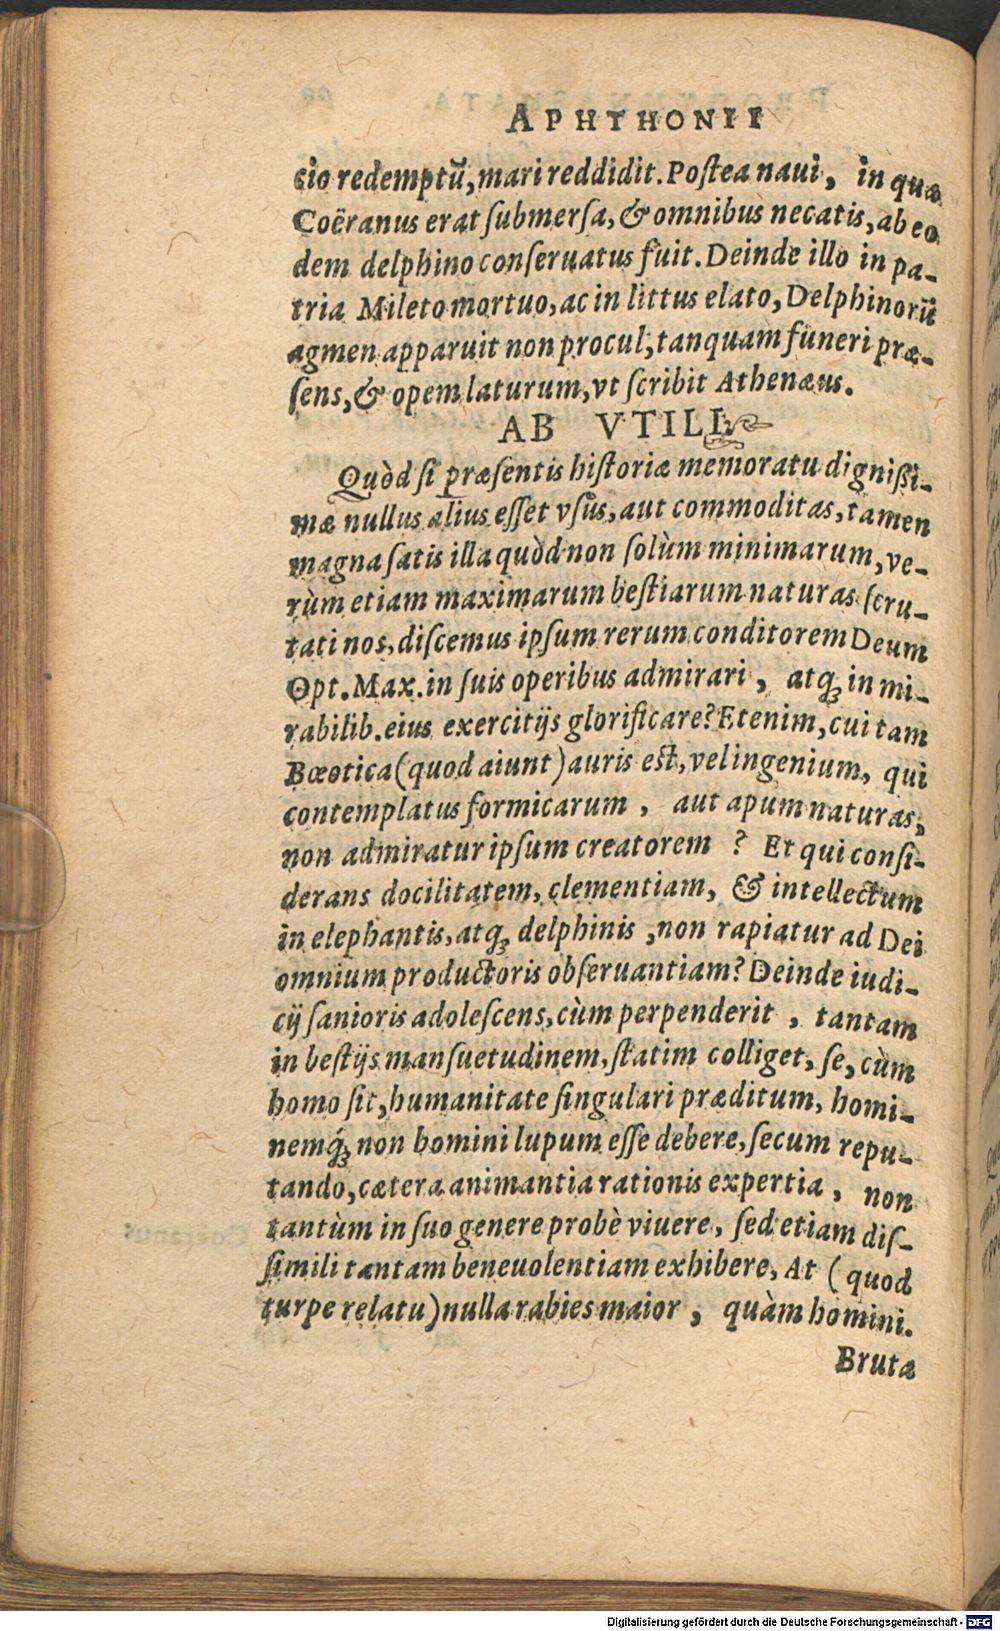 APHTHONII
cio redemptū, mari reddidit. Poſtea naui, in qua
Coëranus erat ſubmerſa, & omnibus necatis, ab eo
dem delphino conſeruatus fuit. Deinde illo in pa-
tria Mileto mortuo, ac in littus elato, Delphinorū
agmen apparuit non procul, tanquam funeri præ-
ſens, & opem laturum, vt ſcribit Athenæus.
AB VTILI
Quòd ſi præſentis hiſtoriæ memoratu digniſſi-
mæ nullus alius eſſet vſus, aut commoditas, tamen
magna ſatis illa quòd non ſolùm minimarum, ve-
rùm etiam maximarum beſtiarum naturas ſcru-
tati nos, diſcemus ipſum rerum conditorem Deum
Opt. Max. in ſuis operibus admirari, atq́ꝫ in mi-
rabilib. eius exercitijs glorificare? Etenim, cui tam
Bœotica (quod aiunt) auris eſt, vel ingenium, qui
contemplatus formicarum, aut apum naturas,
non admiratur ipſum creatorem ? Et qui conſi-
derans docilitatem, clementiam, & intellectum
in elephantis, atqꝫ delphinis, non rapiatur ad Dei
omnium productoris obſeruantiam? Deinde iudi-
cij ſanioris adoleſcens, cùm perpenderit, tantam
in beſtijs manſuetudinem, ſtatim colliget, ſe, cùm
homo ſit, humanitate ſingulari præditum, homi-
nemq́ꝫ non homini lupum eſſe debere, ſecum repu-
tando, cætera animantia rationis expertia, non
tantùm in ſuo genere probè viuere, ſed etiam diſ-
ſimili tantam beneuolentiam exhibere, At (quod
turpe relatu) nulla rabies maior, quàm homini.
Bruta
Digitalisierung gefördert durch die Deutsche Forschungsgemeinschaft - DFG